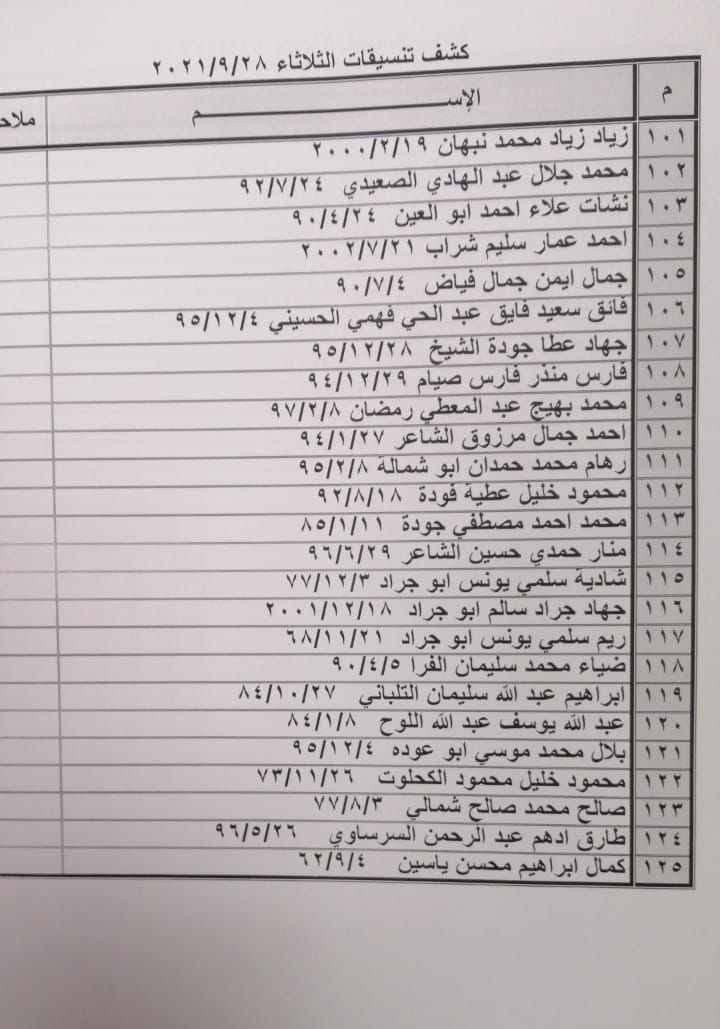 كشف تنسيقات الثلاثاء ٢٠٢١/٩/٢٨
م الإســـــــــم ملاح
١٠١ زياد زياد محمد نبهان ٢٠٠٠/٢/١٩
١٠٢ محمد جلال عبد الهادي الصعيدي ٩٢/٧/٢٤
١٠٣ نشات علاء احمد ابو العين ٩٠/٤/٢٤
١٠٤ احمد عمار سليم شراب ٢٠٠٢/٧/٢١
١٠٥ جمال ايمن جمال فياض ٩٠/٧/٤
١٠٦ فائق سعيد فايق عبد الحي فهمي الحسيني ٩٥/١٢/٤
١٠٧ جهاد عطا جودة الشيخ ٩٥/١٢/٢٨
١٠٨ فارس منذر فارس صيام ٩٤/١٢/٢٩
١٠٩ محمد بهيج عبد المعطي رمضان ٩٧/٢/٨
١١٠ احمد جمال مرزوق الشاعر ٩٤/١/٢٧
١١١ رهام محمد حمدان ابو شمالة ٩٥/٢/٨
١١٢ محمود خليل عطية فودة ٩٢/٨/١٨
١١٣ محمد احمد مصطفي جودة ٨٥/١/١١
١١٤ منار حمدي حسين الشاعر ٩٦/٦/٢٩
١١٥ شادية سلمي يونس ابو جراد ٧٧/١٢/٣
١١٦ جهاد جراد سالم ابو جراد ٢٠٠١/١٢/١٨
١١٧ ريم سلمي يونس ابو جراد ٦٨/١١/٢١
١١٨ ضياء محمد سليمان الفرا ٩٠/٤/٥
١١٩ ابراهيم عبد الله سليمان التلباني ٨٤/١٠/٢٧
١٢٠ عبد الله يوسف عبد الله اللوح ٨٤/١/٨
١٢١ بلال محمد موسي ابو عوده ٩٥/١٢/٤
١٢٢ محمود خليل محمود الكحلوت ٧٣/١١/٢٦
١٢٣ صالح محمد صالح شمالي ٧٧/٨/٣
١٢٤ طارق ادهم عبد الرحمن السرساوي ٩٦/٥/٢٦
١٢٥ كمال ابراهيم محسن ياسين ٦٢/٩/٤